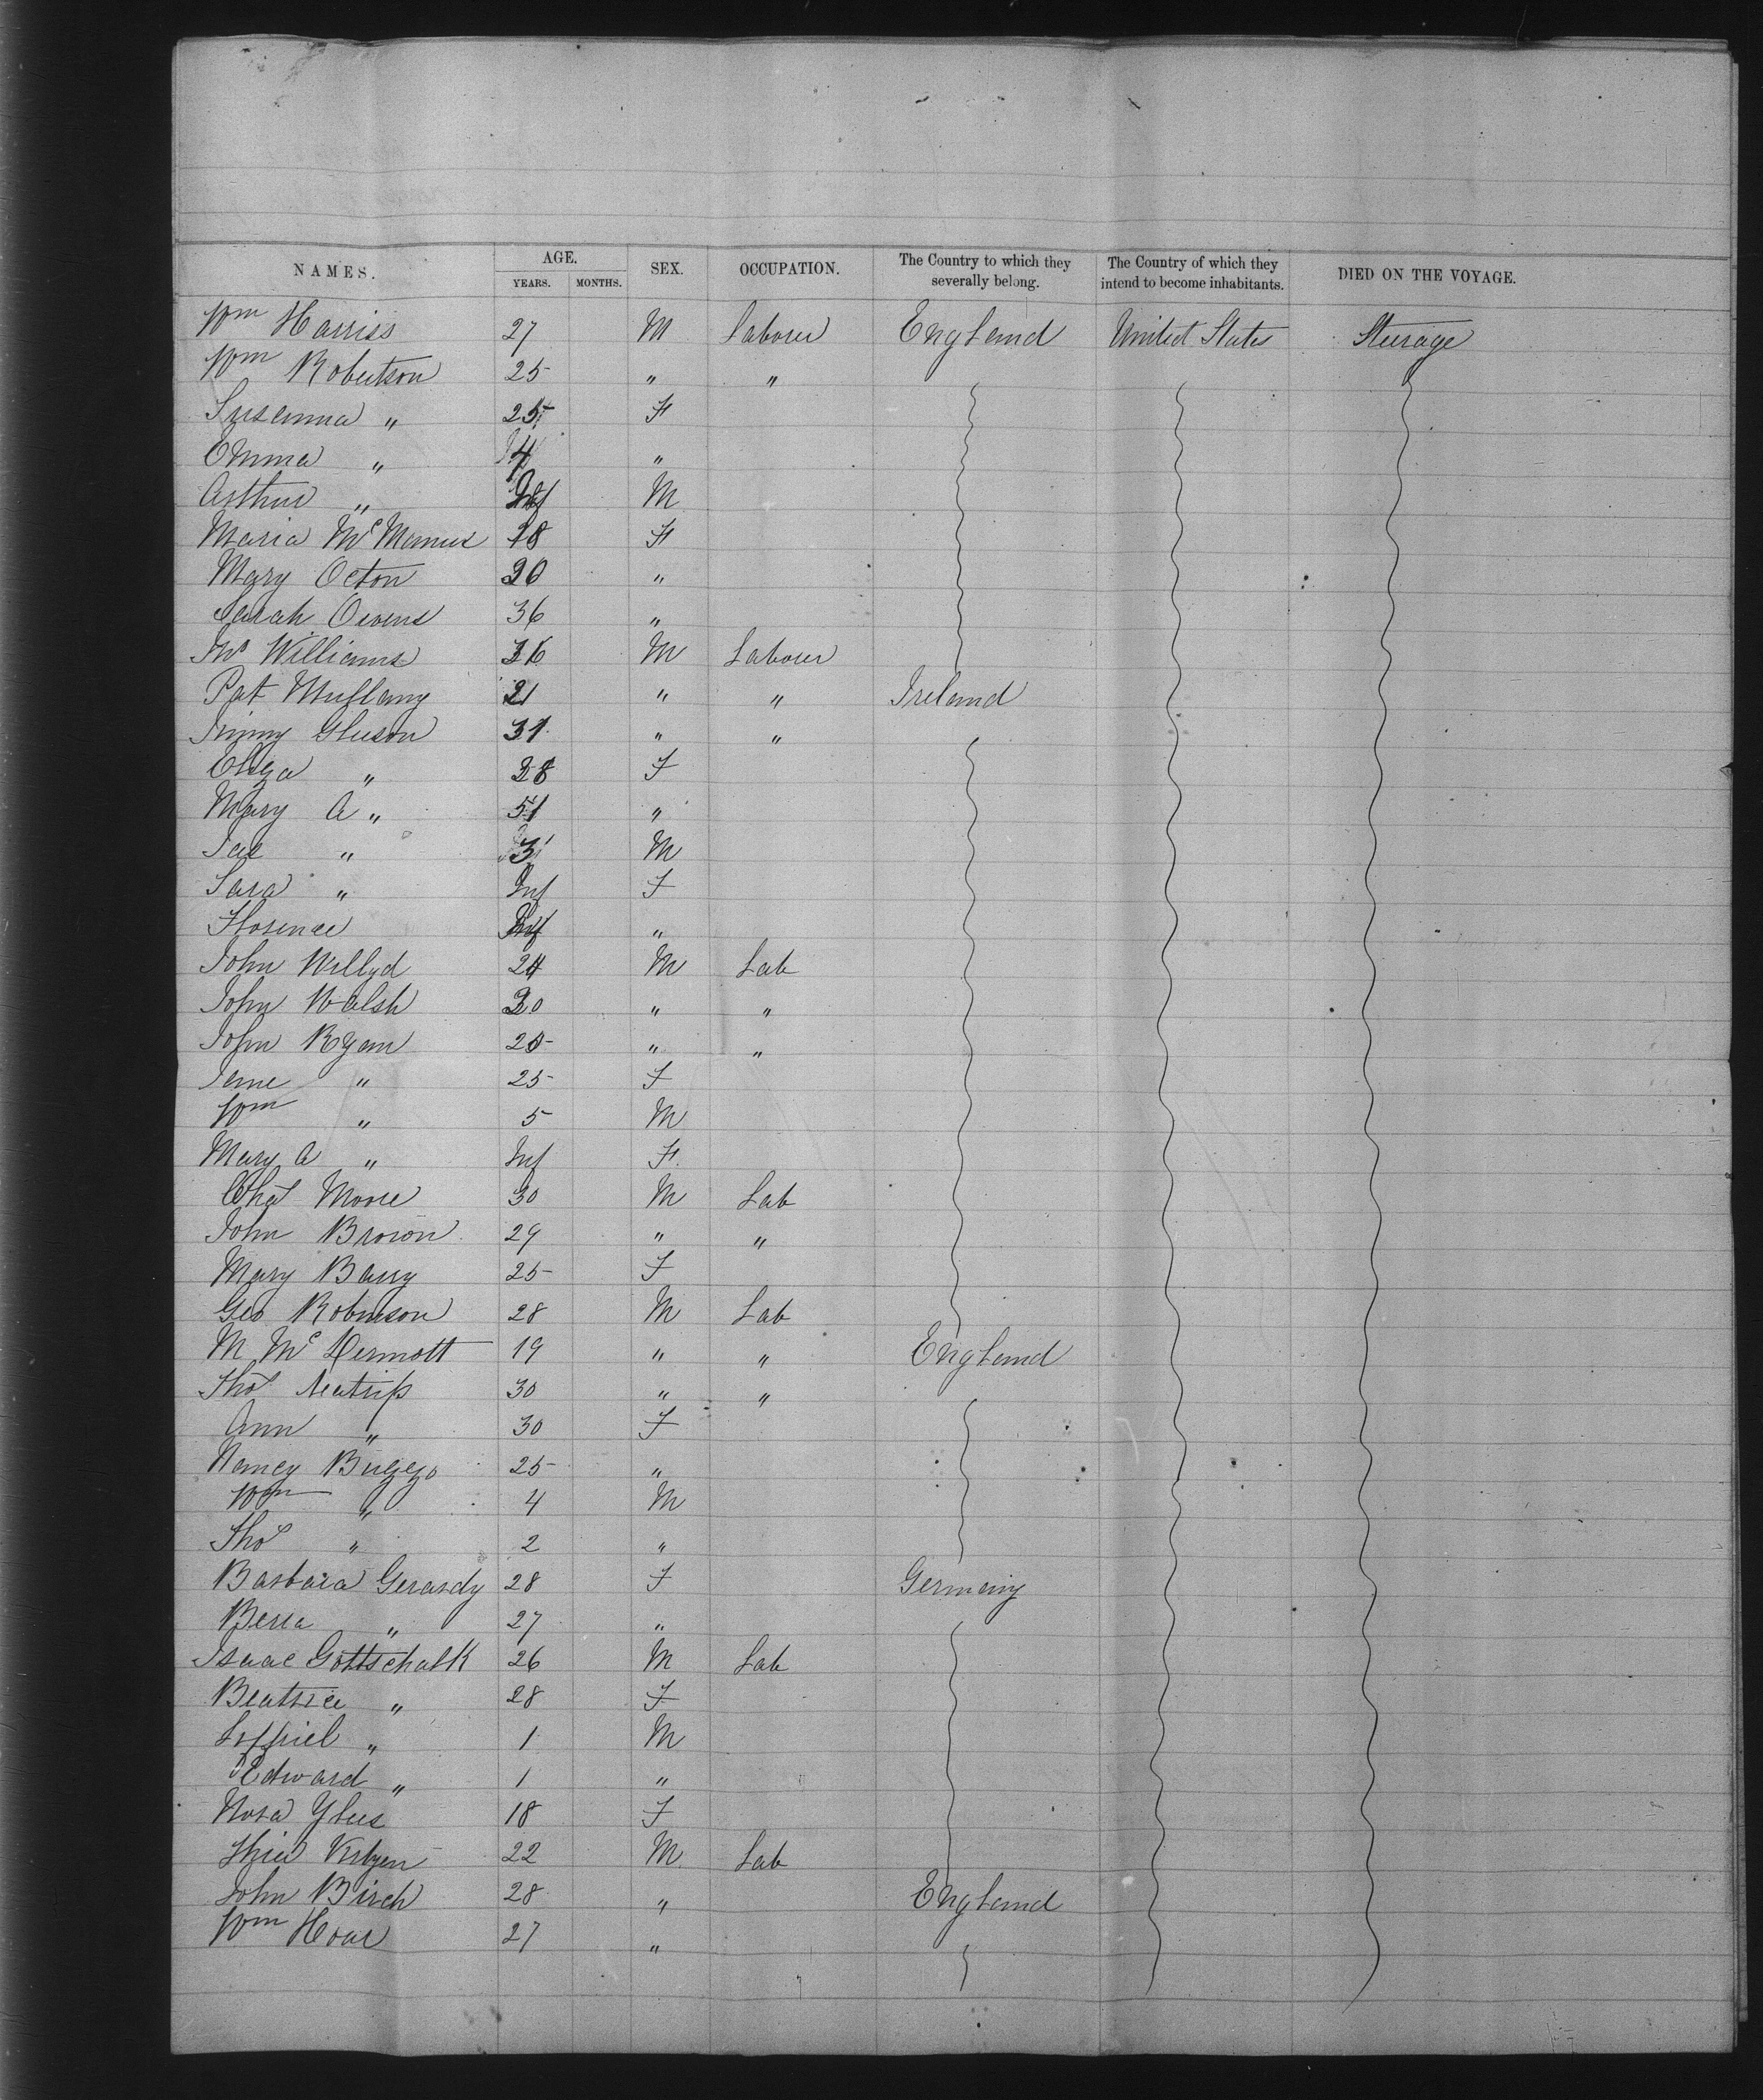 NAMES. AGE. SEX. OCCUPATION. The Country to which they severally belong. The Country of which they intend to become inhabitants. DIED ON THE VOYAGE.
YEARS. MONTHS.
Wm Harriss 27 M Laborer England United States Steerage
Wm Robertson 25 " "
Susanna " 25 F
Emma " 4 "
Arthur " Inf M
Maria McManus 18 F
Mary Octon 20 "
Sarah Owens 36 "
Jno Williams 36 M Laborer
Pat 21 " " Ireland
Gleeson 31 " "
Eliza " 28 F
Mary A " 51 "
" 3 M
Sara " Inf F
Florence Inf "
John Willyd 24 M Lab
John Walsh 20 " "
John Ryan 25 " "
Jane " 25 F
Wm " 5 M
Mary A " Inf F
Chas Moore 30 M Lab
John Brown 29 " "
Mary Barry 25 F
Geo Robinson 28 M Lab
M McDermott 19 " " England
Thos 30 " "
Ann " 30 F
Nancy 25 "
Wm " 4 M
Thos " 2 "
Barbara Gerardy 28 F Germany
" 27 "
Isaac Gottschalk 26 M Lab
Beatrice " 28 F
" 1 M
Edward " 1 "
18 F
22 M Lab
John Birch 28 " England
Wm Hoar 27 "